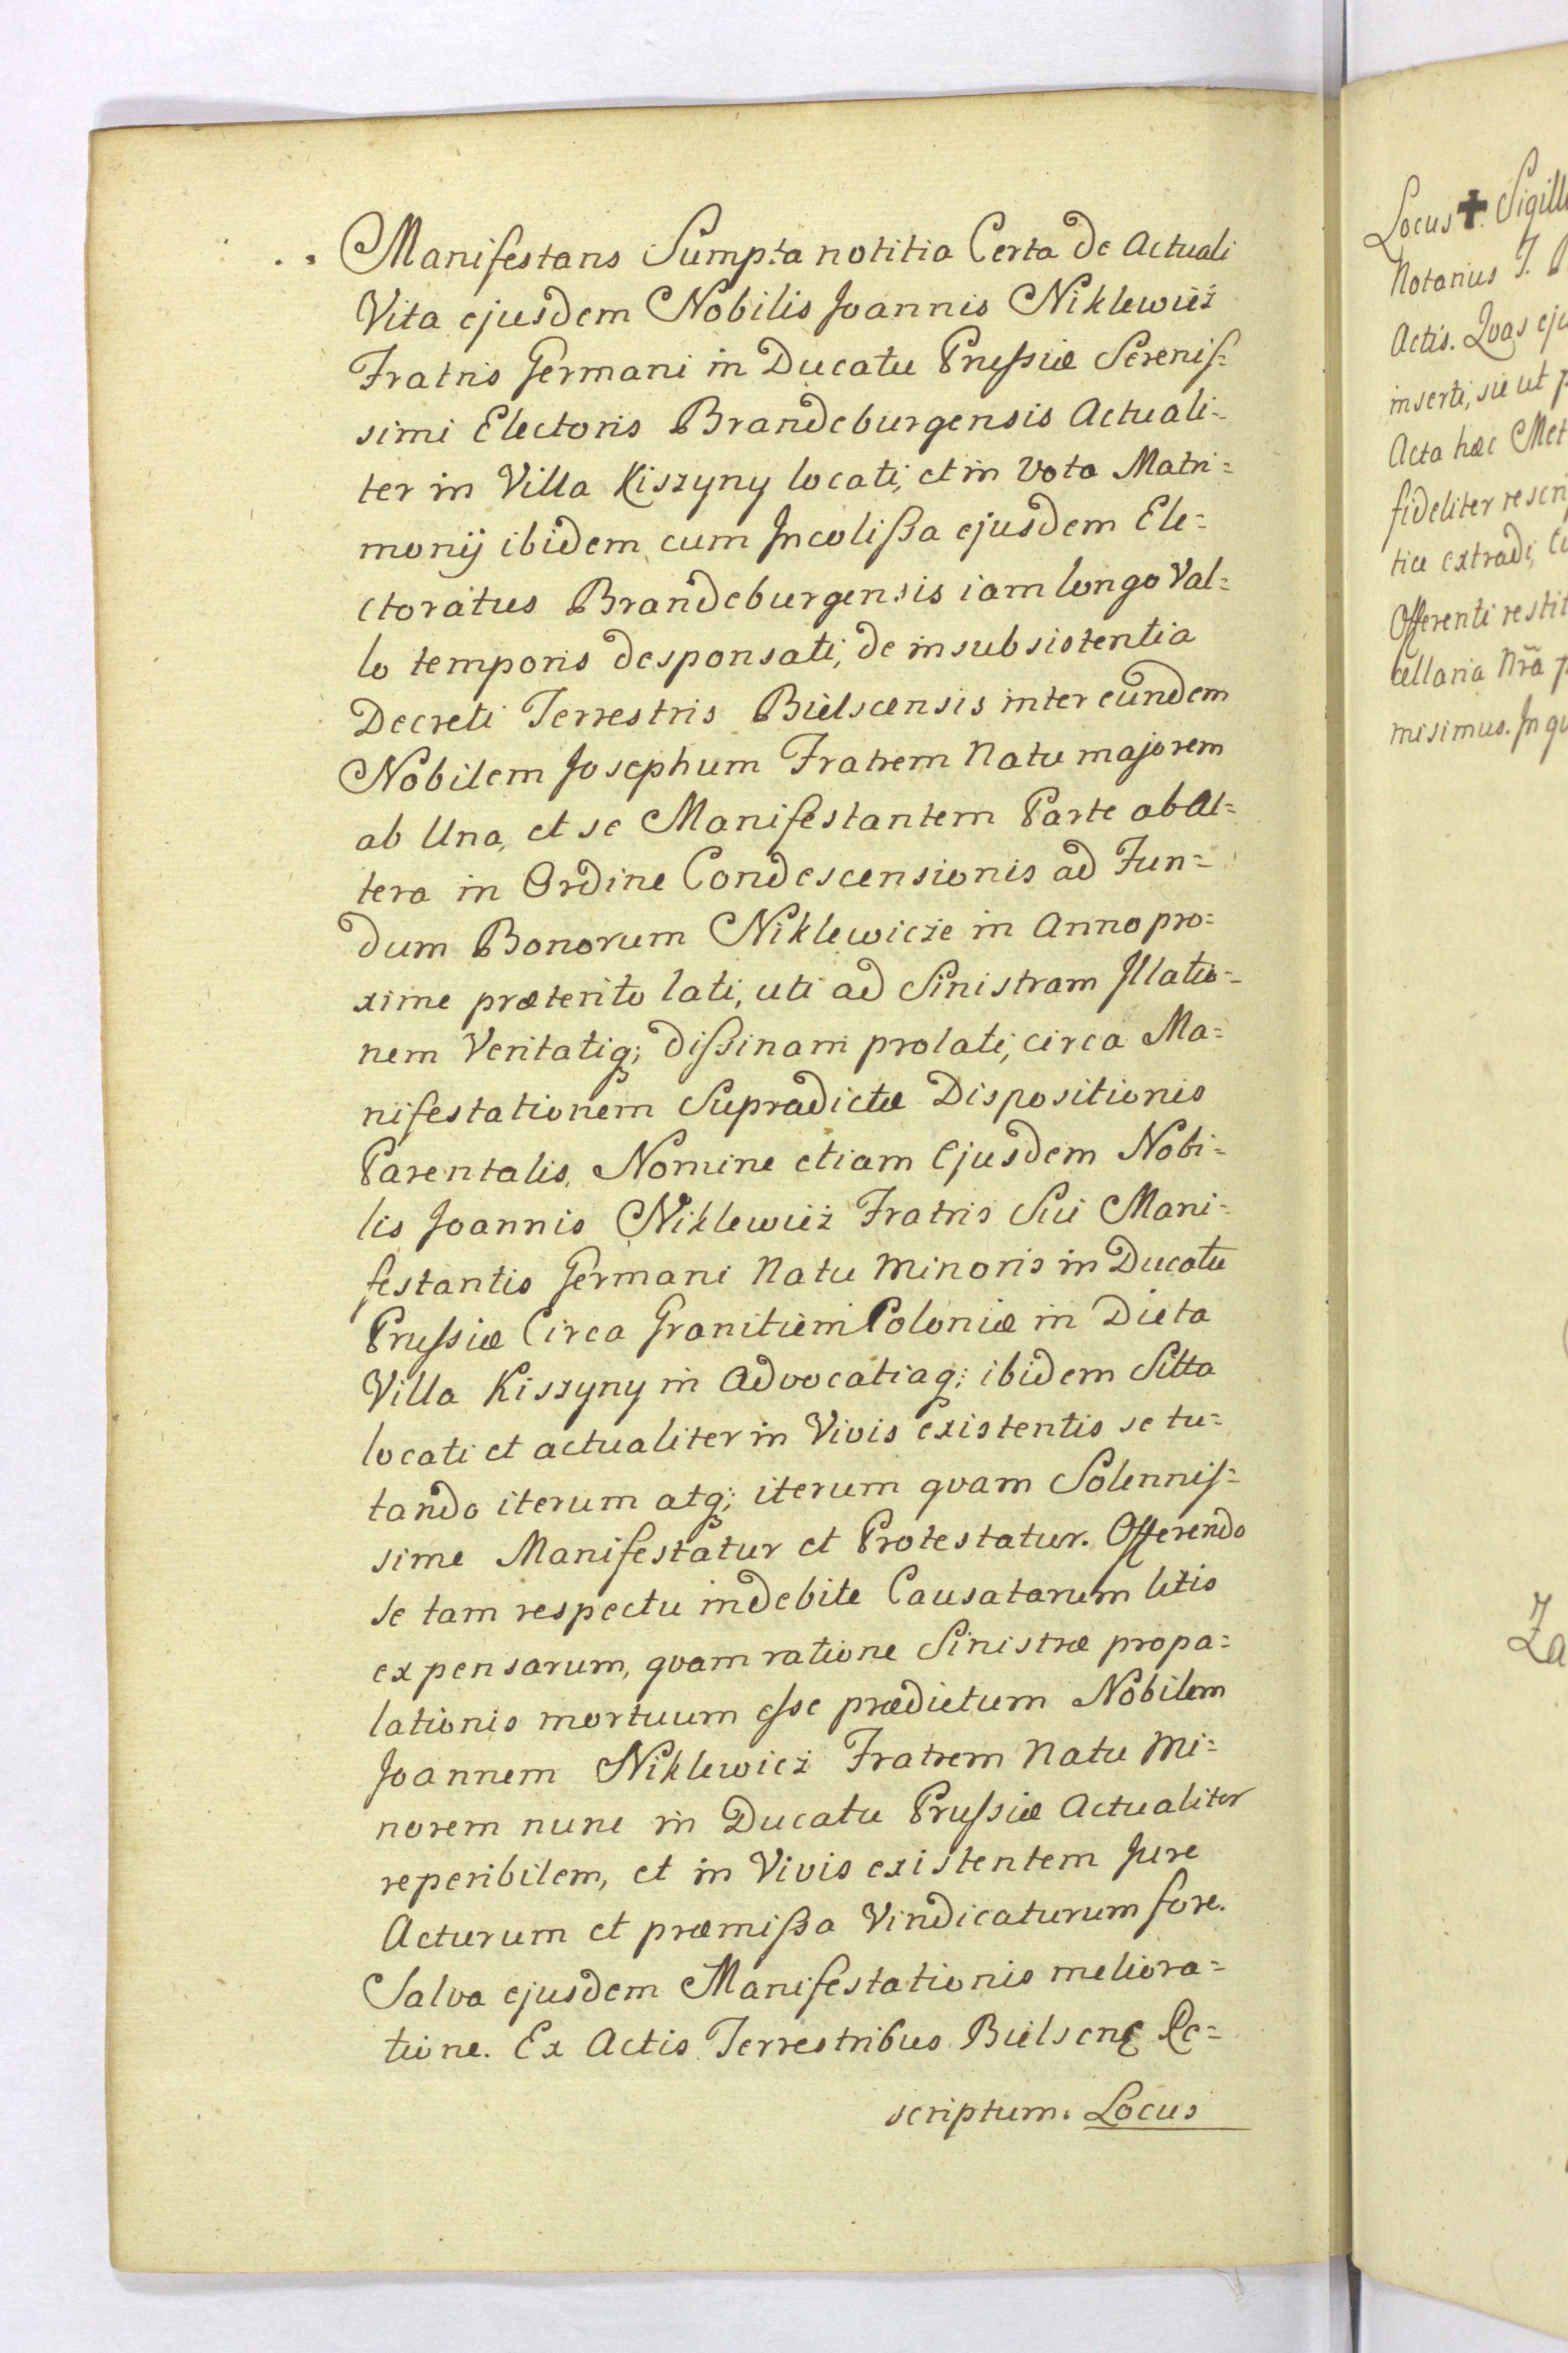 Manifestans Sumpta notitia Certa de Actuali
Vita ejusdem Nobilis Joannis Niklewicż
Fratris Germani in Ducatu Prussiæ Serenis=
simi Electoris Brandeburgensis Actuali=
ter in Villa Kiszyny locati, et in Vota Matri=
monij ibidem cum Incolissa ejusdem Ele=
ctoratus Brandeburgensis iam longo Val=
lo temporis desponsati, de insubsistentia
Decreti Terrestris Bielscensis inter eundem
Nobilem Josephum Fratrem Natu majorem
ab Una, et se Manifestantem Parte ab Al=
tera in Ordine Condescensionis ad Fun=
dum Bonorum Niklewicże in Anno pro=
xime præterito lati, uti ad Sinistram Illatio=
nem Veritatiq; dissinam prolati, circa Ma=
nifestationem Supradictæ Dispositionis
Parentalis, Nomine etiam Ejusdem Nobi=
lis Joannis Niklewicż Fratris Sui Mani=
festantis Germani Natu Minoris in Ducatu
Prussiæ Circa Granitiem Poloniæ in Dicta
Villa Kiszyny in Advocatiaq; ibidem Sitta
locati et actualiter in Vivis existentis se tu=
tando iterum atq; iterum qvam Solennis=
sime Manifestatur et Protestatur. Offerendo
se tam respectu indebite Causatarum litis
expensarum, qvam ratione Sinistræ propa=
lationis mortuum esse prædictum Nobilem
Joannem Niklewicż Fratrem Natu Mi=
norem nunc in Ducatu Prussiæ Actualiter
reperibilem, et in Vivis existentem Jure
Acturum et præmissa Vindicaturum fore.
Salva ejusdem Manifestationis meliora=
tione. Ex Actis Terrestribus Bielscen Re=
scriptum. Locus
Locus ✝ Sigill
Notarius T.
Actis. Qvas eju
inserti, sic ut p
Acta hæc Met
fideliter rescri
tiæ extradi,
Offerenti restit
cellaria Nrã p
misimus. In qu
Za